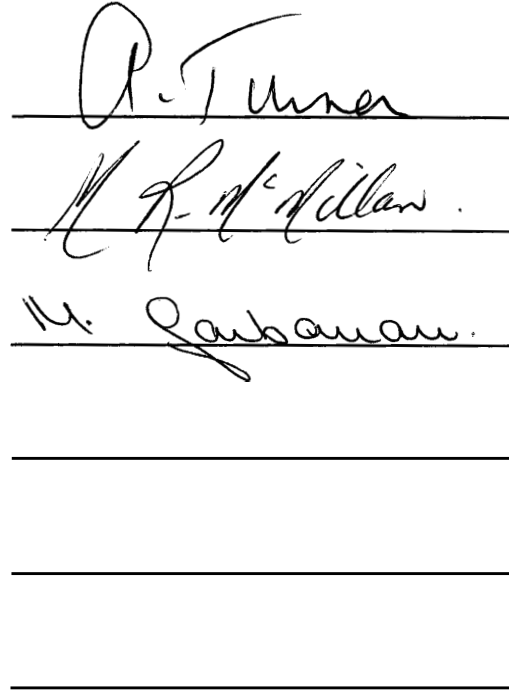 A. Turner
M R. McMillan.
M. Garbanau.